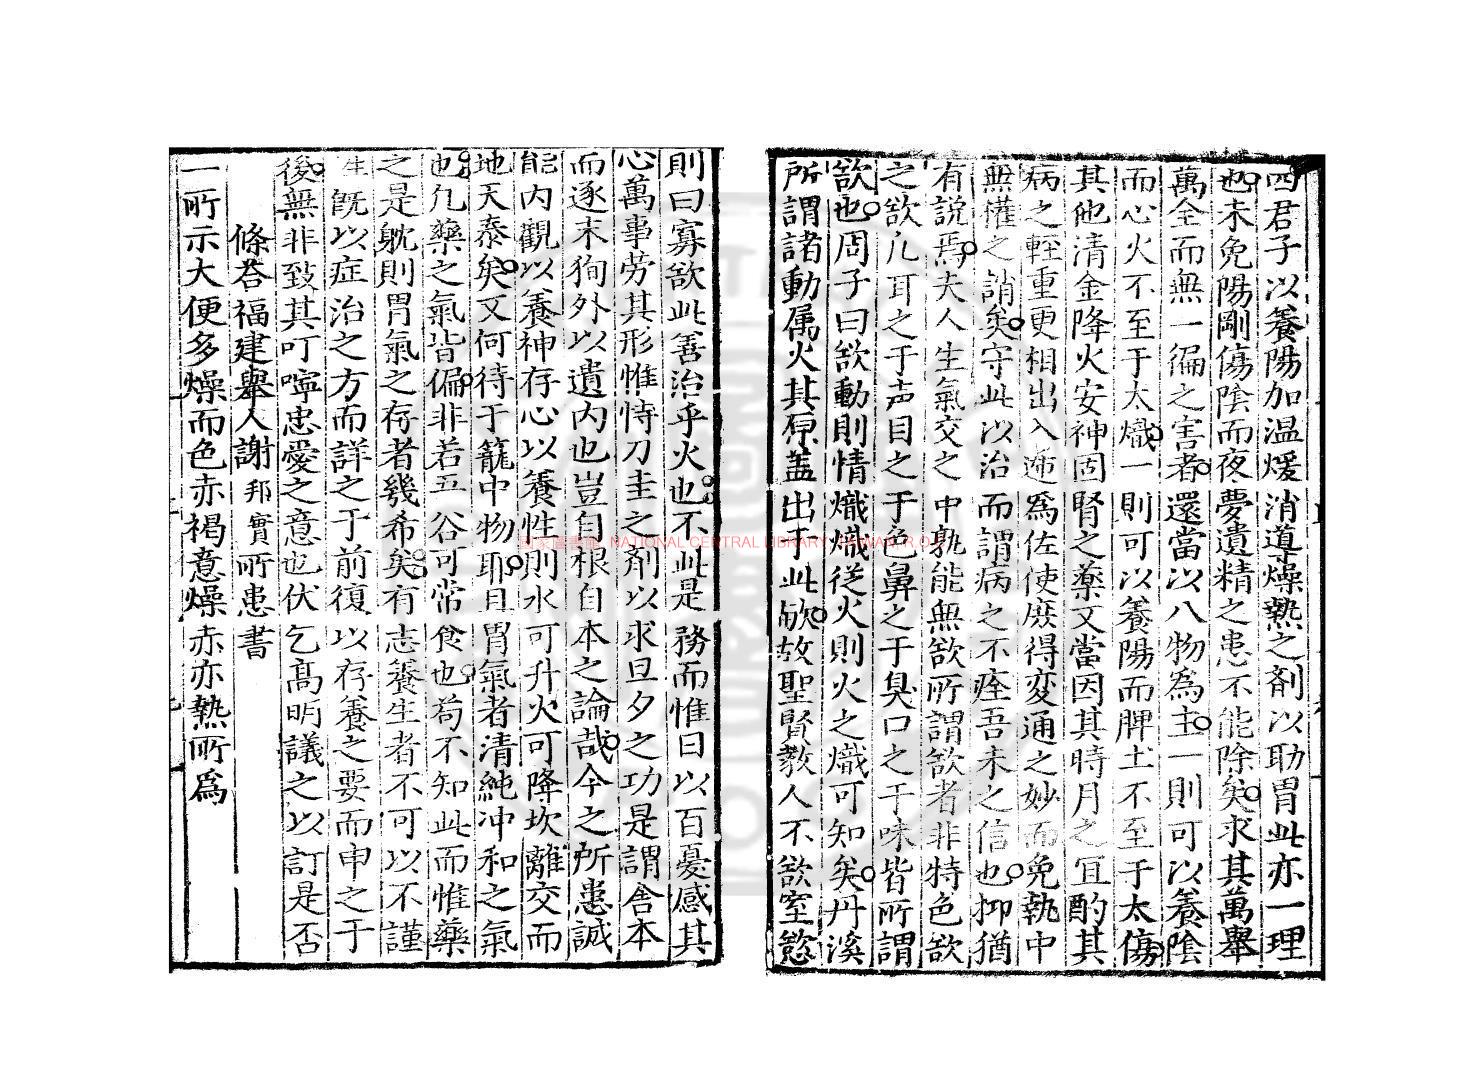 四君子以養陽加温煖消導燥熱之劑以助胃此亦一理
也未免陽剛傷陰而夜夢遺精之患不能除矣求其萬舉
萬全而無一偏之害者還當以八物為主一則可以養陰
而心火不至于太熾一則可以養陽而脾土不至于太傷
其他清金降火安神固腎之藥又當因其時月之宜酌其
病之輕重更相出入迊為佐使庶得変通之妙而免執中
無權之誚矣守此以治而謂病之不痊吾未之信也抑猶
有説焉夫人生氣交之中孰能無欲所謂欲者非特色欲
之欲凡耳之于声目之于色鼻之于臭口之于味皆所謂
欲也周子曰欲動則情熾熾従火則火之熾可知矣丹溪
所謂諸動属火其原盖出于此欤故聖賢教人不欲窒慾
則曰寡欲此善治乎火也不此是務而惟日以百憂感其
心萬事劳其形惟恃刀圭之剤以求旦夕之功是謂舎本
而逐末狥外以遺内也豈自根自本之論哉今之所患誠
能内觀以養神存心以養性則水可升火可降坎離交而
地天泰矣又何待于籠中物耶且胃氣者清純冲和之氣
也凡藥之氣皆偏非若五谷可常食也苟不知此而惟藥
之是躭則胃氣之存者幾希矣有志養生者不可以不謹
旣以症治之方而詳之于前復以存養之要而申之于
後無非致其叮嚀忠愛之意也伏乞髙明議之以訂是否
條荅福建舉人謝邦實所患書
一所示大便多燥而色赤褐意燥赤亦熱所爲
國家圖書館 NATIONAL CENTRAL LIBRARY, TAIWAN R.O.C